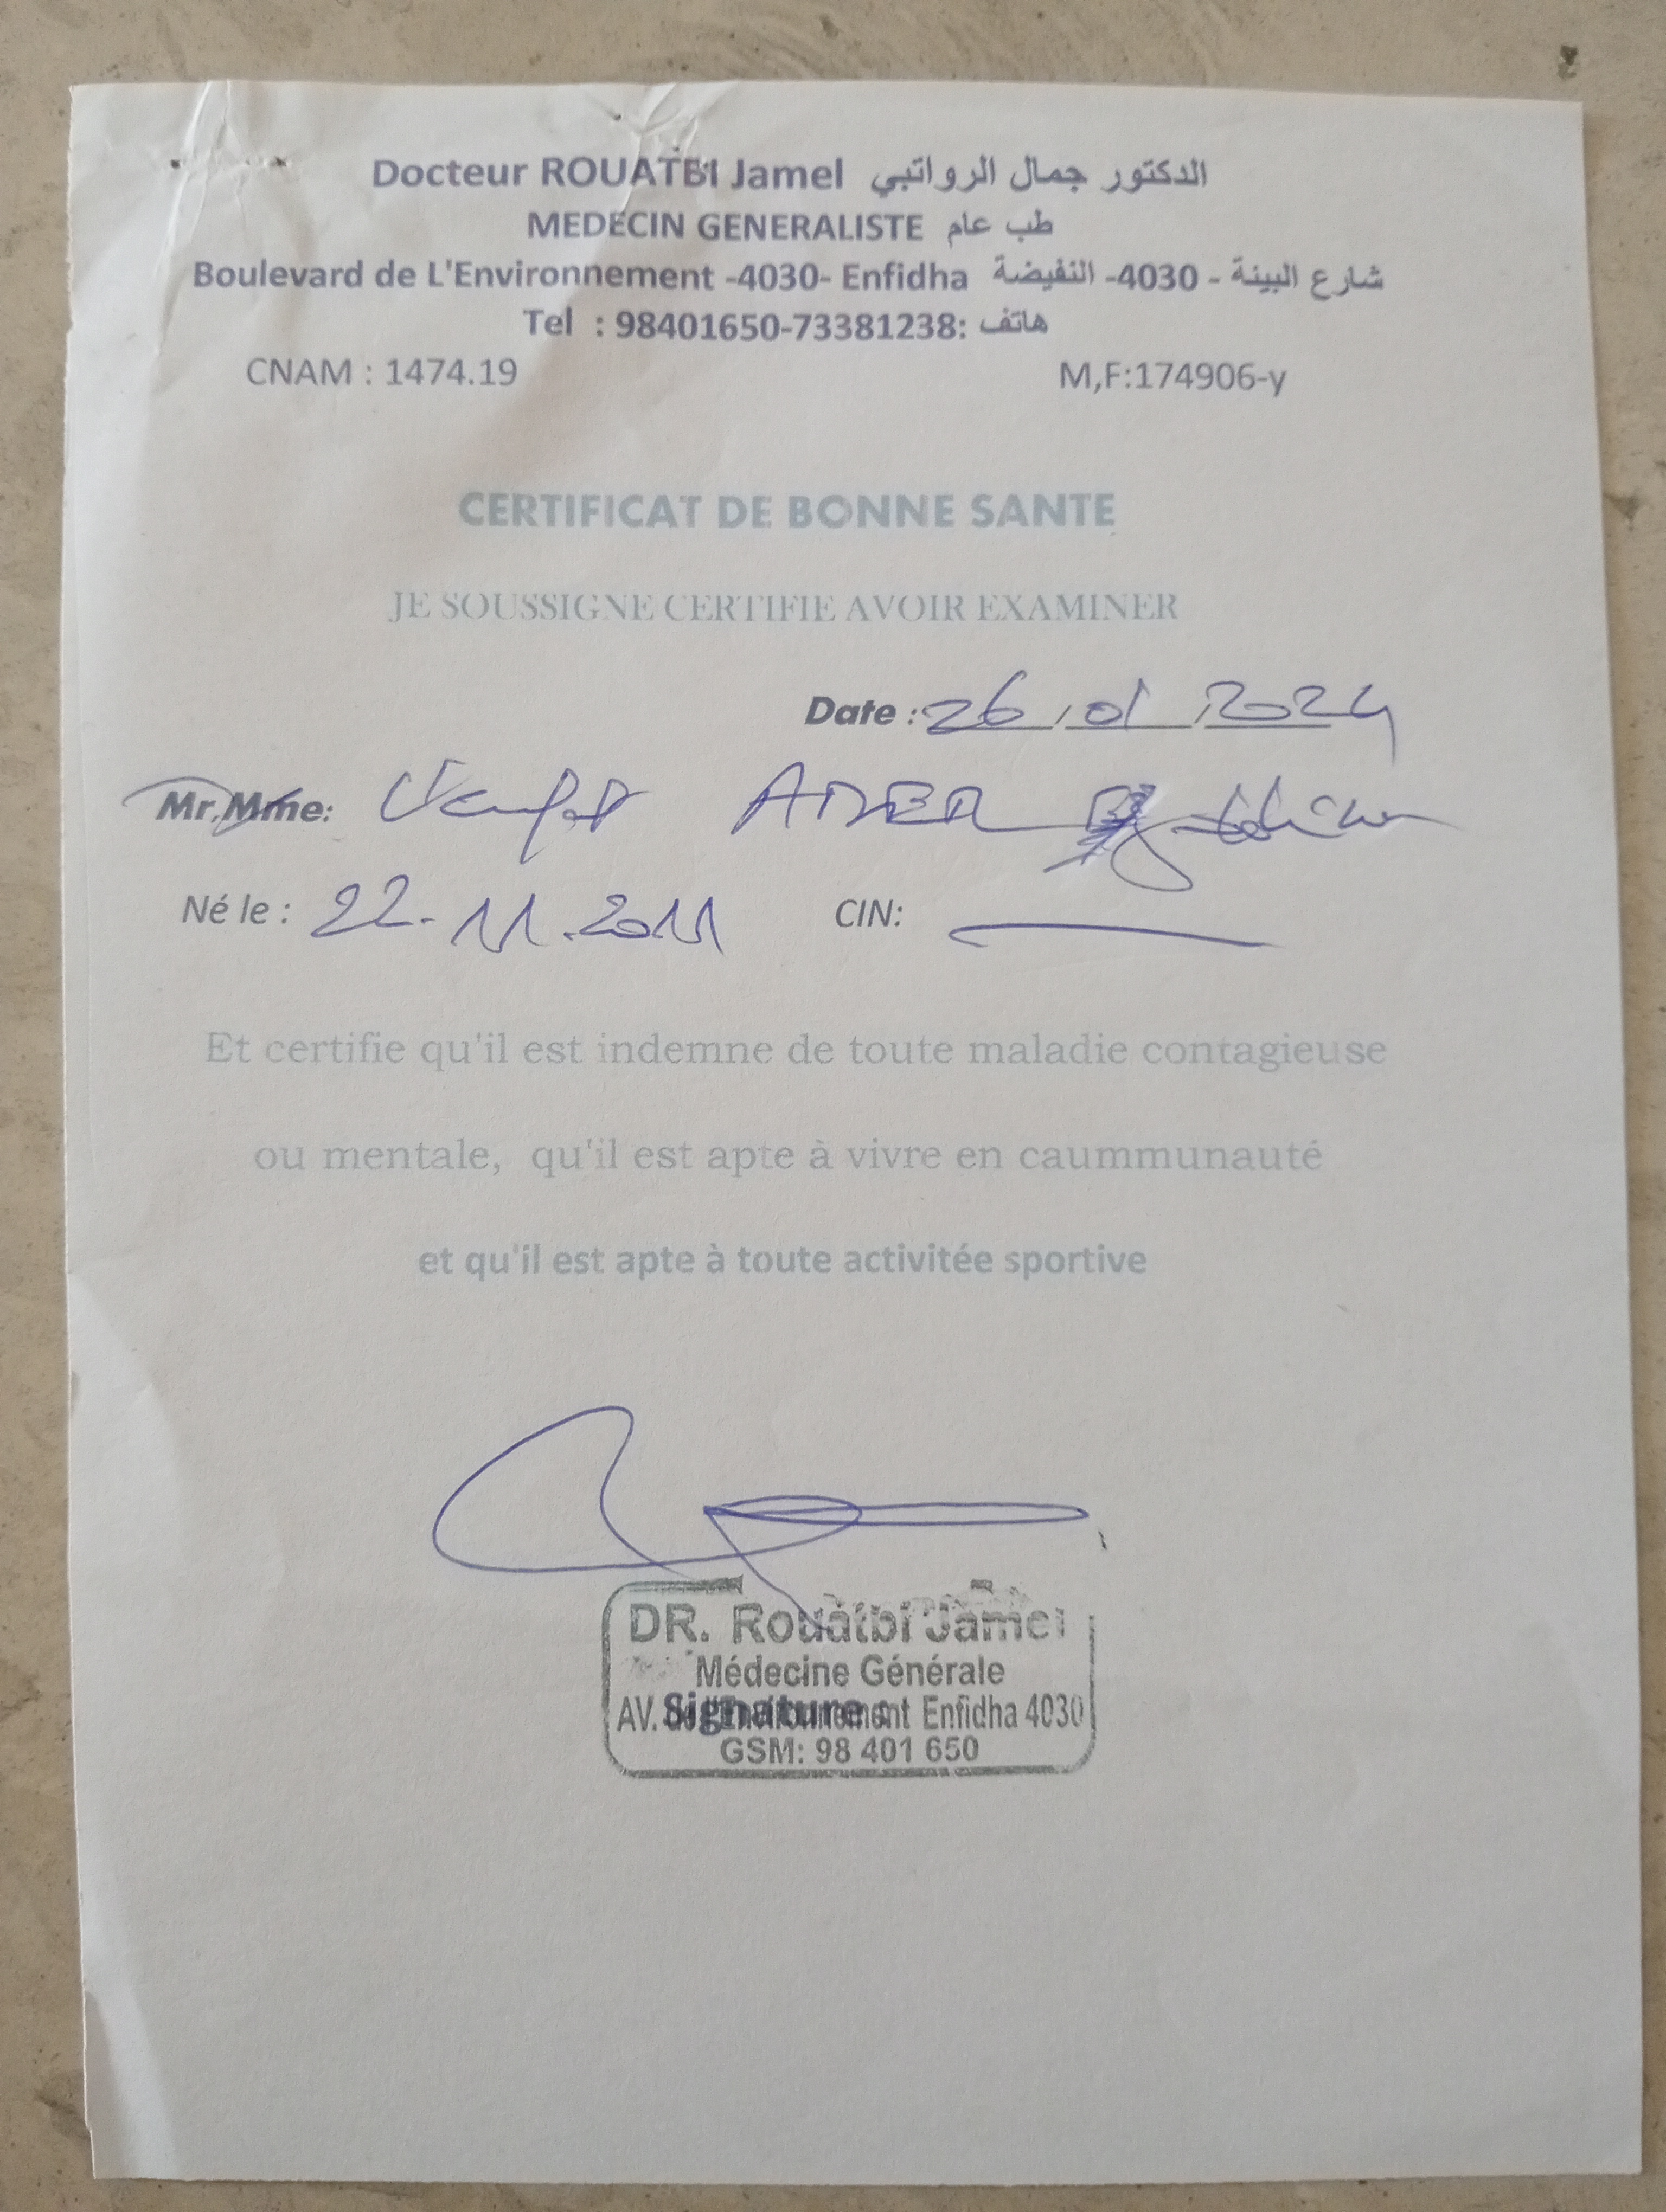 Docteur ROUATBI Jamel الدكتور جمال الرواتبي
MEDECIN GENERALISTE طب عام
Boulevard de L'Environnement -4030- Enfidha شارع البينة - 4030- النفيضة
Tel : 98401650-73381238: هاتف
CNAM : 1474.19 M,F:174906-y
CERTIFICAT DE BONNE SANTE
JE SOUSSIGNE CERTIFIE AVOIR EXAMINER
Date : 26/01/2024
Mr,Mme:
Né le : 22.11.2011 CIN:
Et certifie qu'il est indemne de toute maladie contagieuse
ou mentale, qu'il est apte à vivre en caummunauté
et qu'il est apte à toute activitée sportive
DR. Rouatbi Jamel
Médecine Générale
AV. de l'Environnement Enfidha 4030
Signature :
GSM: 98 401 650